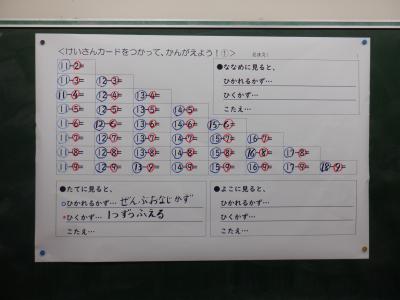 ＜けいさんカードをつかって、かんがえよう！①＞
●ななめに見ると、
ひかれるかず…
ひくかず…
こたえ…
11-2=
11-3= 12-3=
11-4= 12-4= 13-4=
11-5= 12-5= 13-5= 14-5=
11-6= 12-6= 13-6= 14-6= 15-6=
11-7= 12-7= 13-7= 14-7= 15-7= 16-7=
11-8= 12-8= 13-8= 14-8= 15-8= 16-8= 17-8=
11-9= 12-9= 13-9= 14-9= 15-9= 16-9= 17-9= 18-9=
●たてに見ると、
ひかれるかず…ぜんぶおなじかず
ひくかず…1つずつふえる
こたえ…
●よこに見ると、
ひかれるかず…
ひくかず…
こたえ…